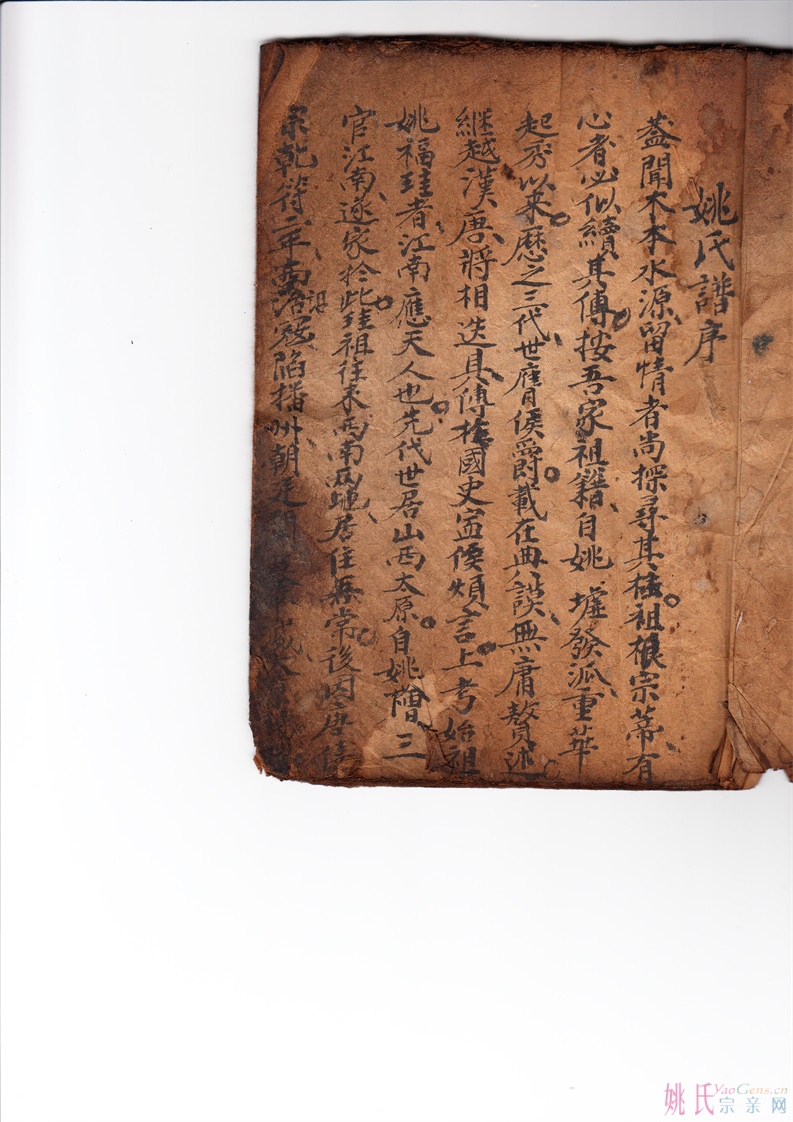 姚氏譜序
蓋聞木本水源留情者尚探尋其極祖根宗蒂有
心者必似續其傳按吾家祖籍自姚墟發派重華
起秀以來歷之三代世膺侯爵載在典謨無庸贅述
繼越漢唐將相迭具傳於國史寔僾煩言上考始祖
姚福珪者江南應天人也先代世居山西太原自姚䭝三
官江南遂家於此珪祖往來西南兩地居住無常後因唐僖
宗乾符二年南詔寇陷播州朝廷
姚氏 YaoGens.cn
宗亲网